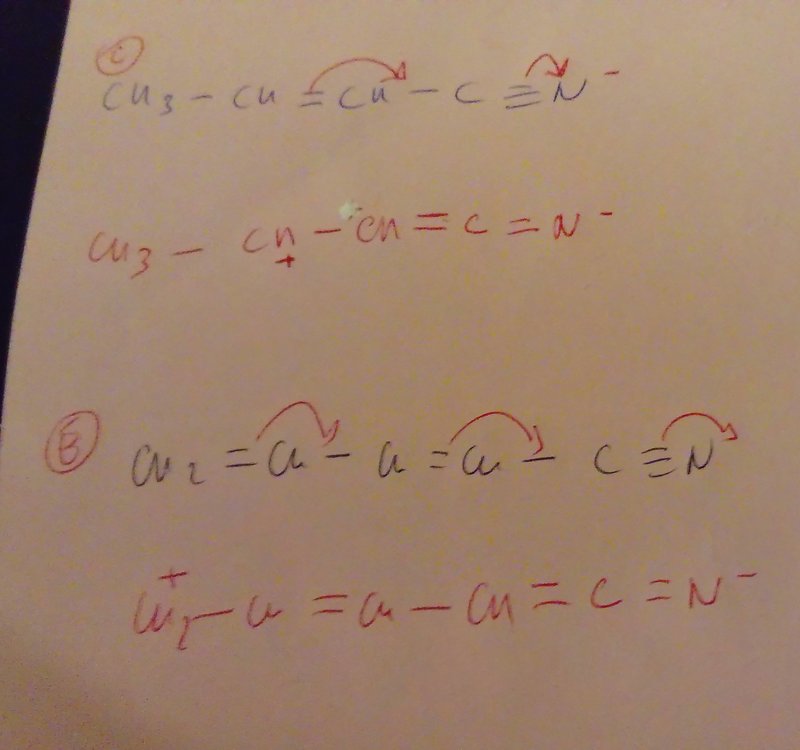 C
CH3 - CH = CH - C ≡ N -
CH3 - CH + - CH = C = N -
B
CH2 = CH - CH = CH - C ≡ N
CH2 + - CH = CH - CH = C = N -